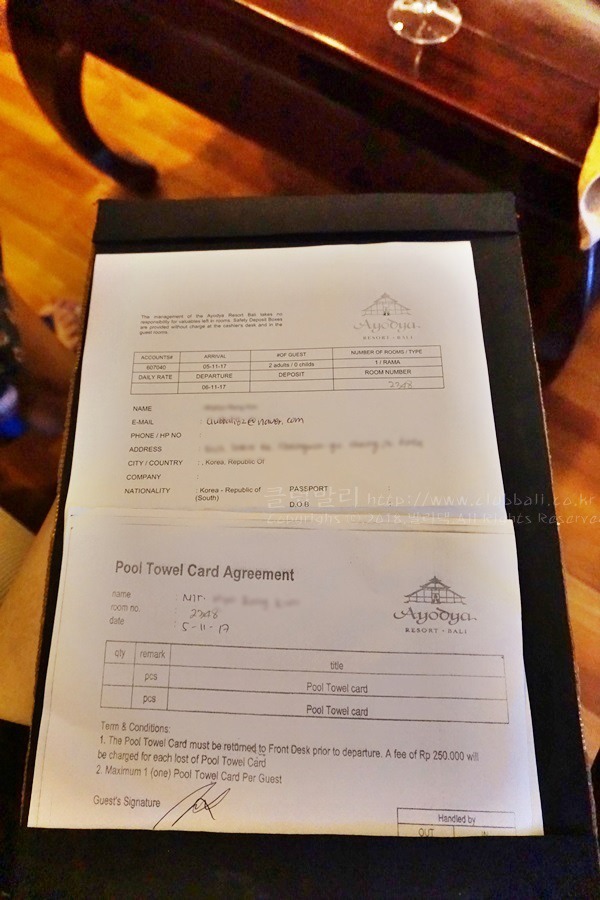 The management of the Ayodya Resort Bali takes no
responsibility for valuables left in rooms. Safety Deposit Boxes
are provided without charge at the cashier's desk and in the
guest rooms.
Ayodya
RESORT • BALI
ACCOUNTS# ARRIVAL #OF GUEST NUMBER OF ROOMS / TYPE
607040 05-11-17 2 adults / 0 childs 1 / RAMA
DAILY RATE DEPARTURE DEPOSIT ROOM NUMBER
06-11-17 2348
NAME :
E-MAIL :
PHONE / HP NO :
ADDRESS :
CITY / COUNTRY : , Korea, Republic Of
COMPANY :
NATIONALITY : Korea - Republic of PASSPORT :
(South)
D.O.B
클럽발리 http://www.clubbali.co.kr
All Rights Reserved
Pool Towel Card Agreement
name : Mr.
room no. : 2348
date : 5-11-17
Ayodya
RESORT • BALI
qty remark title
pcs Pool Towel card
pcs Pool Towel card
Term & Conditions:
1. The Pool Towel Card must be returned to Front Desk prior to departure. A fee of Rp 250.000 will
be charged for each lost of Pool Towel Card
2. Maximum 1 (one) Pool Towel Card Per Guest
Guest's Signature
Handled by
OUT IN